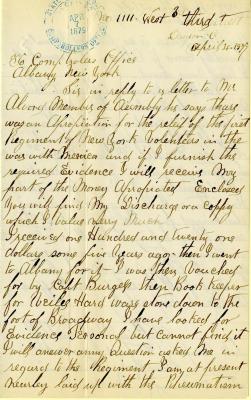 No. 1111 West 3 third
April 1879
To Comptrolers Office
Albany New York
Sir in reply to a letter to Mr
Alvord Member of Assembly he says there
was an Apropiation for the relief of the first
Regiment of New York Volenters in the
war with Mexico and if I furnish the
required Evidence I will receive my
part of the Money Apropiated Enclosed
You will find My Discharge or a coppy
which I value very Much
I received one Hundred and twenty one
dollars some five Years ago then I went
to Albany for it I was then Vouched
for by Capt Burgess then Book keeper
for Hard
foot of Broadway I have looked for
Evidence Personal but cannot find it
I will answer anny question asked me in
regard to the Regiment, I am at present
nearley laid up with the Rheumatism